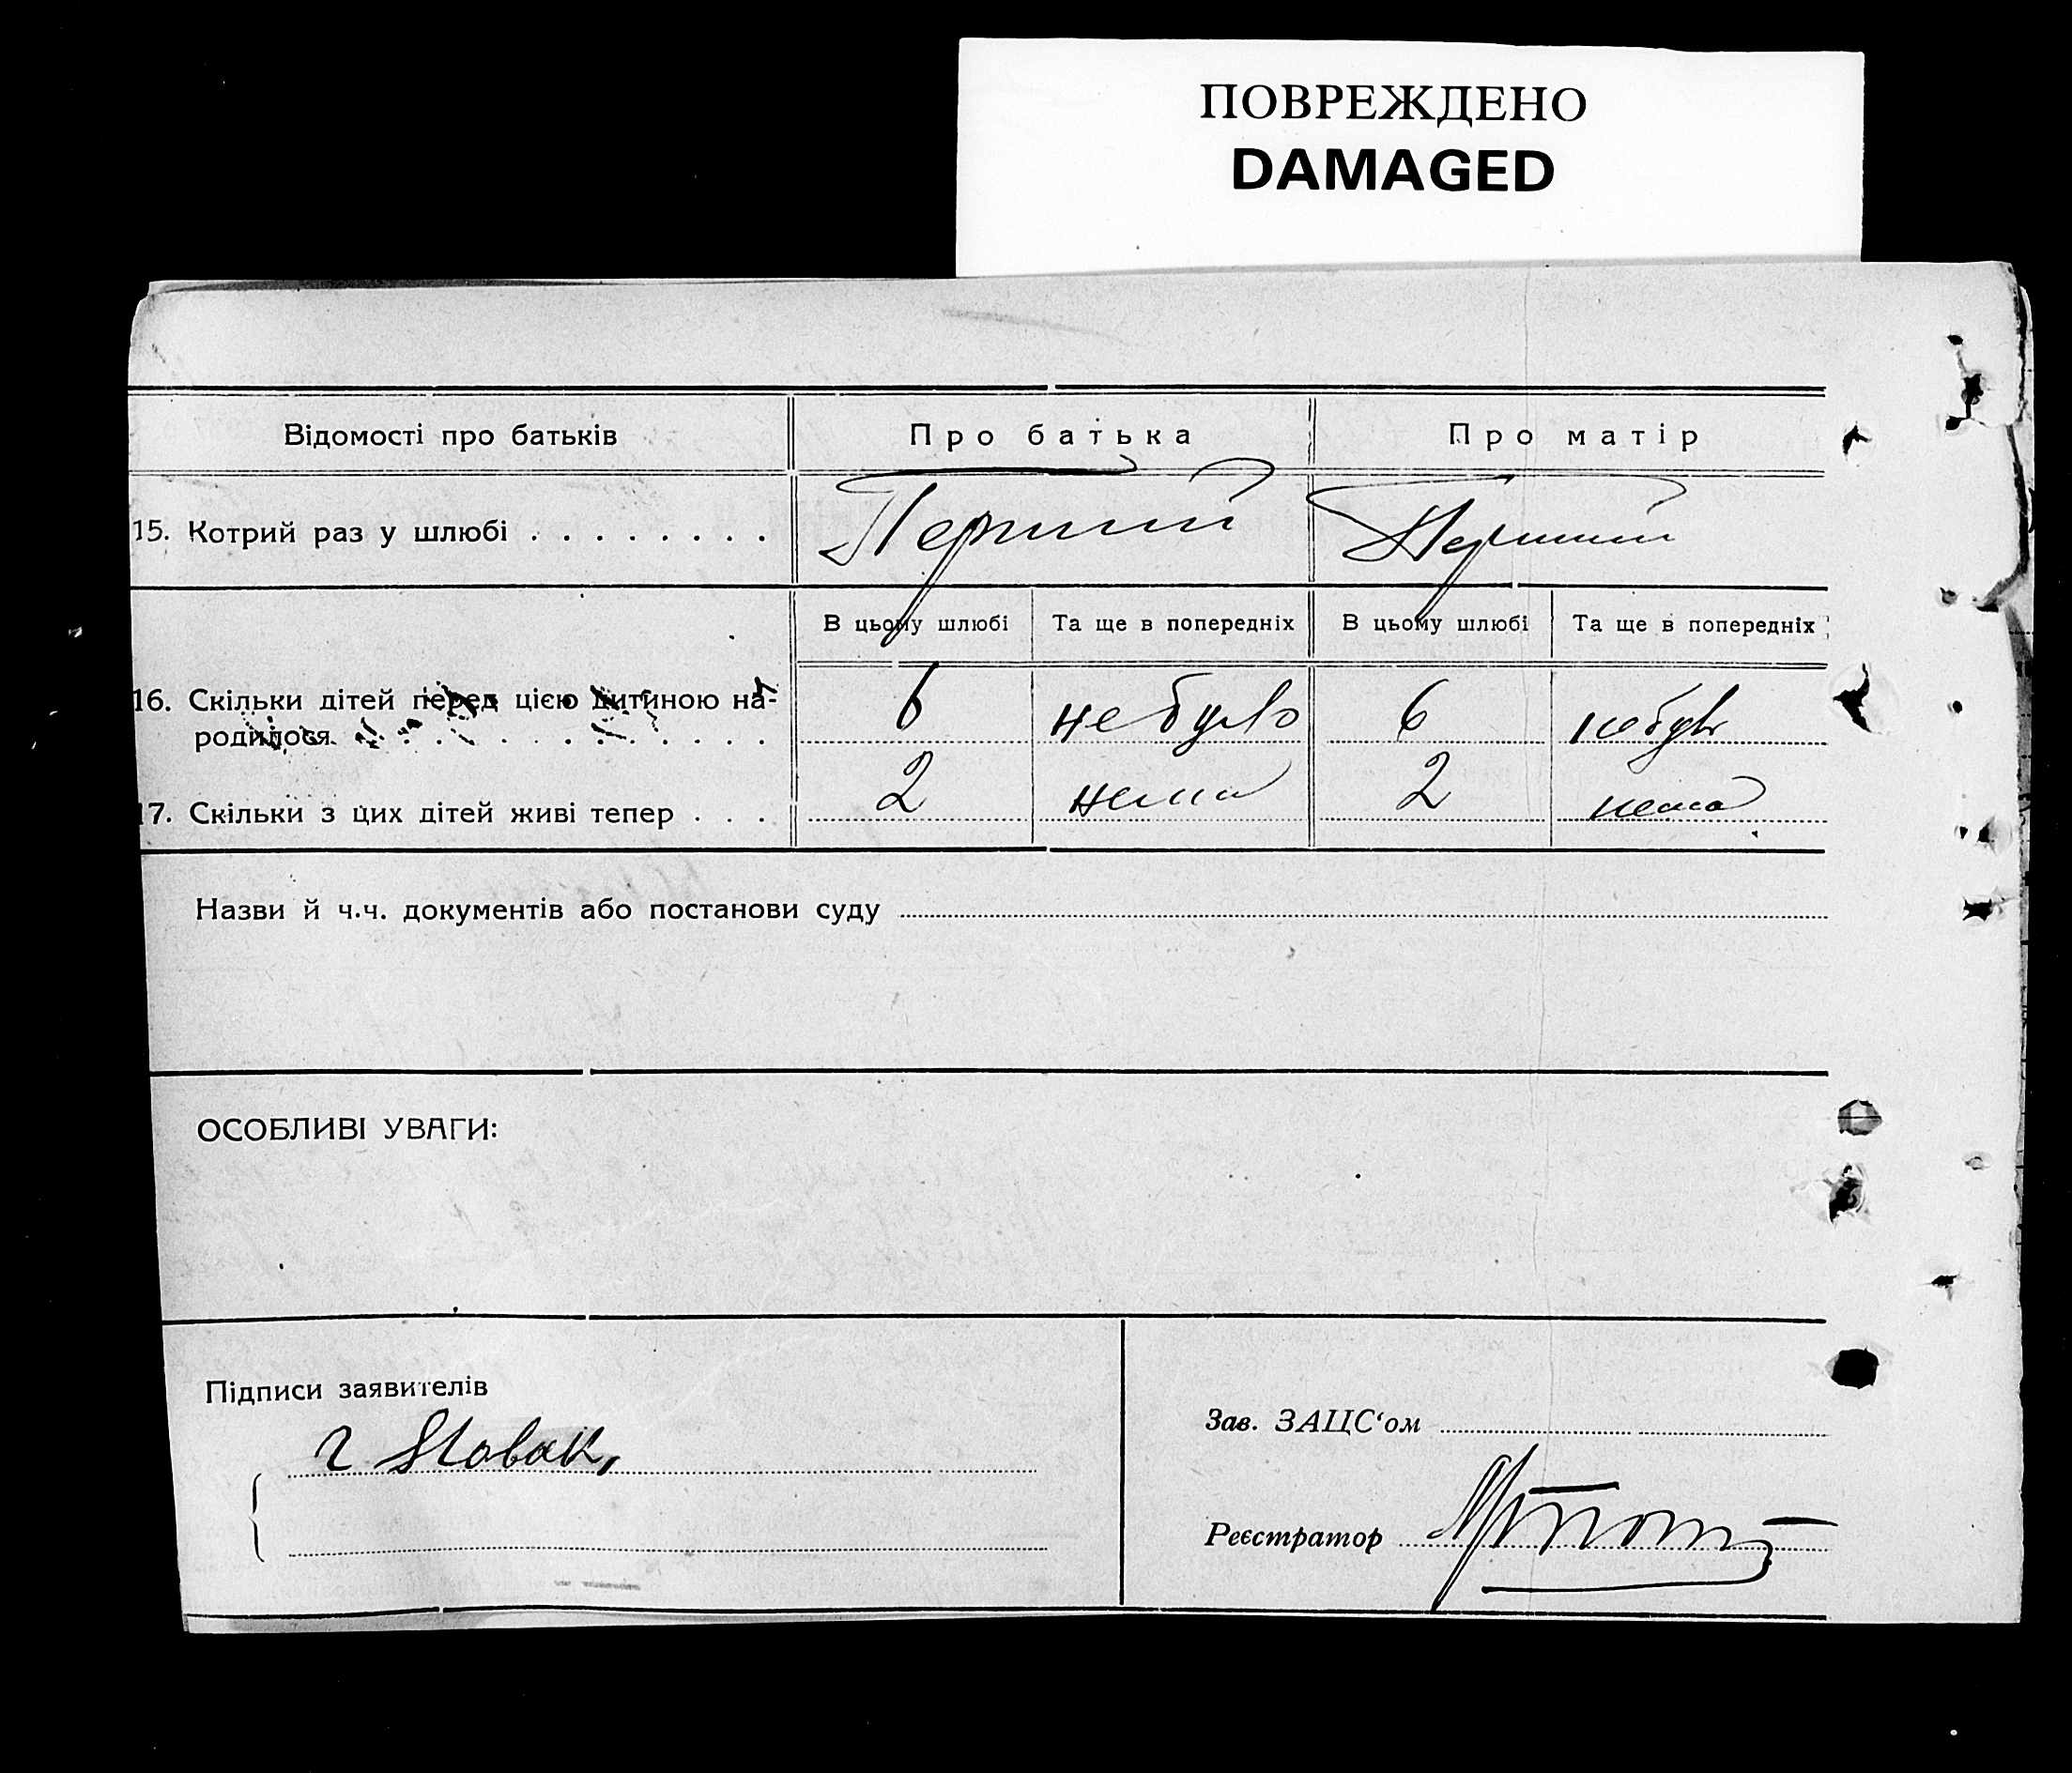 ПОВРЕЖДЕНО
DAMAGED
Відомості про батьків
Про батька
Про матір
15. Котрий раз у шлюбі . . . . . . . .
Перший
Перший
В цьому шлюбі
Та ще в попередніх
В цьому шлюбі
Та ще в попередніх
16. Скільки дітей перед цією дитиною на-
родилося
6
не було
6
не було
17. Скільки з цих дітей живі тепер . . .
2
нема
2
нема
Назви й ч.ч. документів або постанови суду
ОСОБЛИВІ УВАГИ:
Підписи заявителів
Зав. ЗАЦС‘ом
Реєстратор